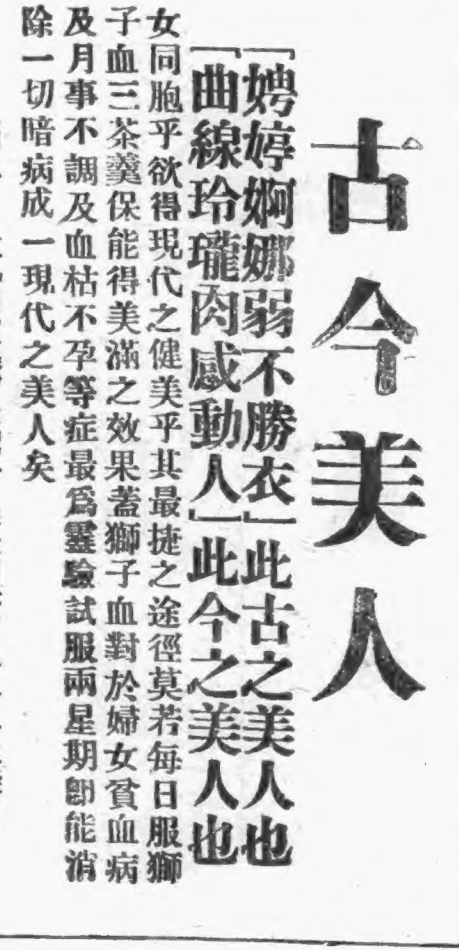 古今美人
「娉婷婀娜弱不勝衣」此古之美人也
「曲線玲瓏肉感動人」此今之美人也
女同胞乎欲得現代之健美乎其最捷之途徑莫若每日服獅
子血三茶羹保能得美滿之效果蓋獅子血對於婦女貧血病
及月事不調及血枯不孕等症最爲靈驗試服兩星期卽能消
除一切暗病成一現代之美人矣